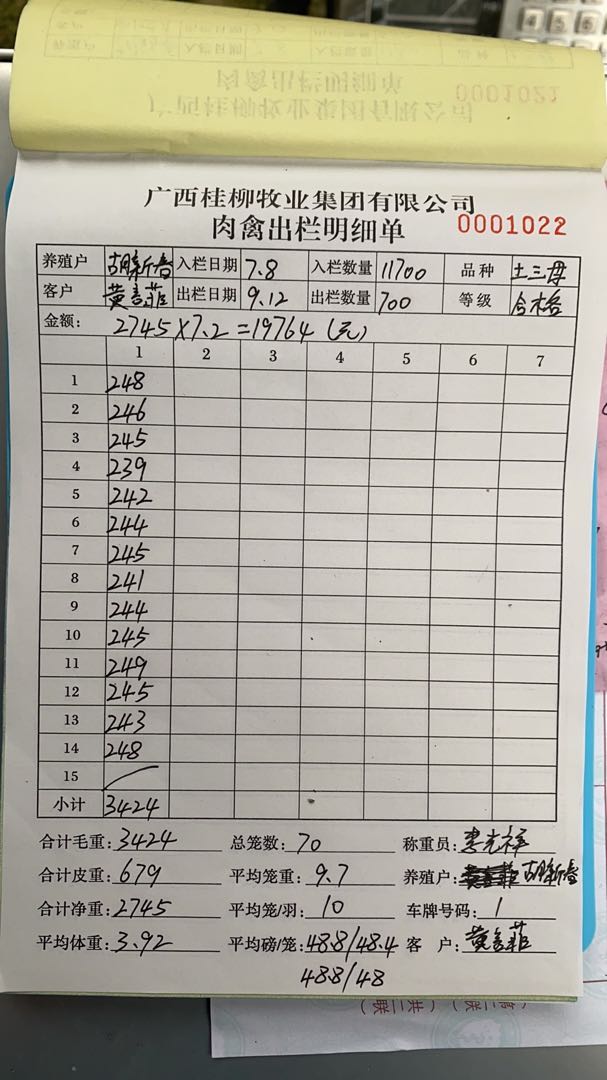 0001021
广西桂柳牧业集团有限公司
肉禽出栏明细单
0001022
养殖户 胡新春 入栏日期 7.8 入栏数量 11700 品种 土三母
客户 黄言菲 出栏日期 9.12 出栏数量 700 等级 合格
金额: 2745×7.2=19764(元)
1 2 3 4 5 6 7
1 248
2 246
3 245
4 239
5 242
6 244
7 245
8 241
9 244
10 245
11 249
12 245
13 243
14 248
15
小计 3424
合计毛重: 3424 总笼数: 70 称重员: 李光祥
合计皮重: 679 平均笼重: 9.7 养殖户: 胡新春
合计净重: 2745 平均笼/羽: 10 车牌号码: 1
平均体重: 3.92 平均磅/笼: 48.8/48.4 客 户: 黄言菲
48.8/48